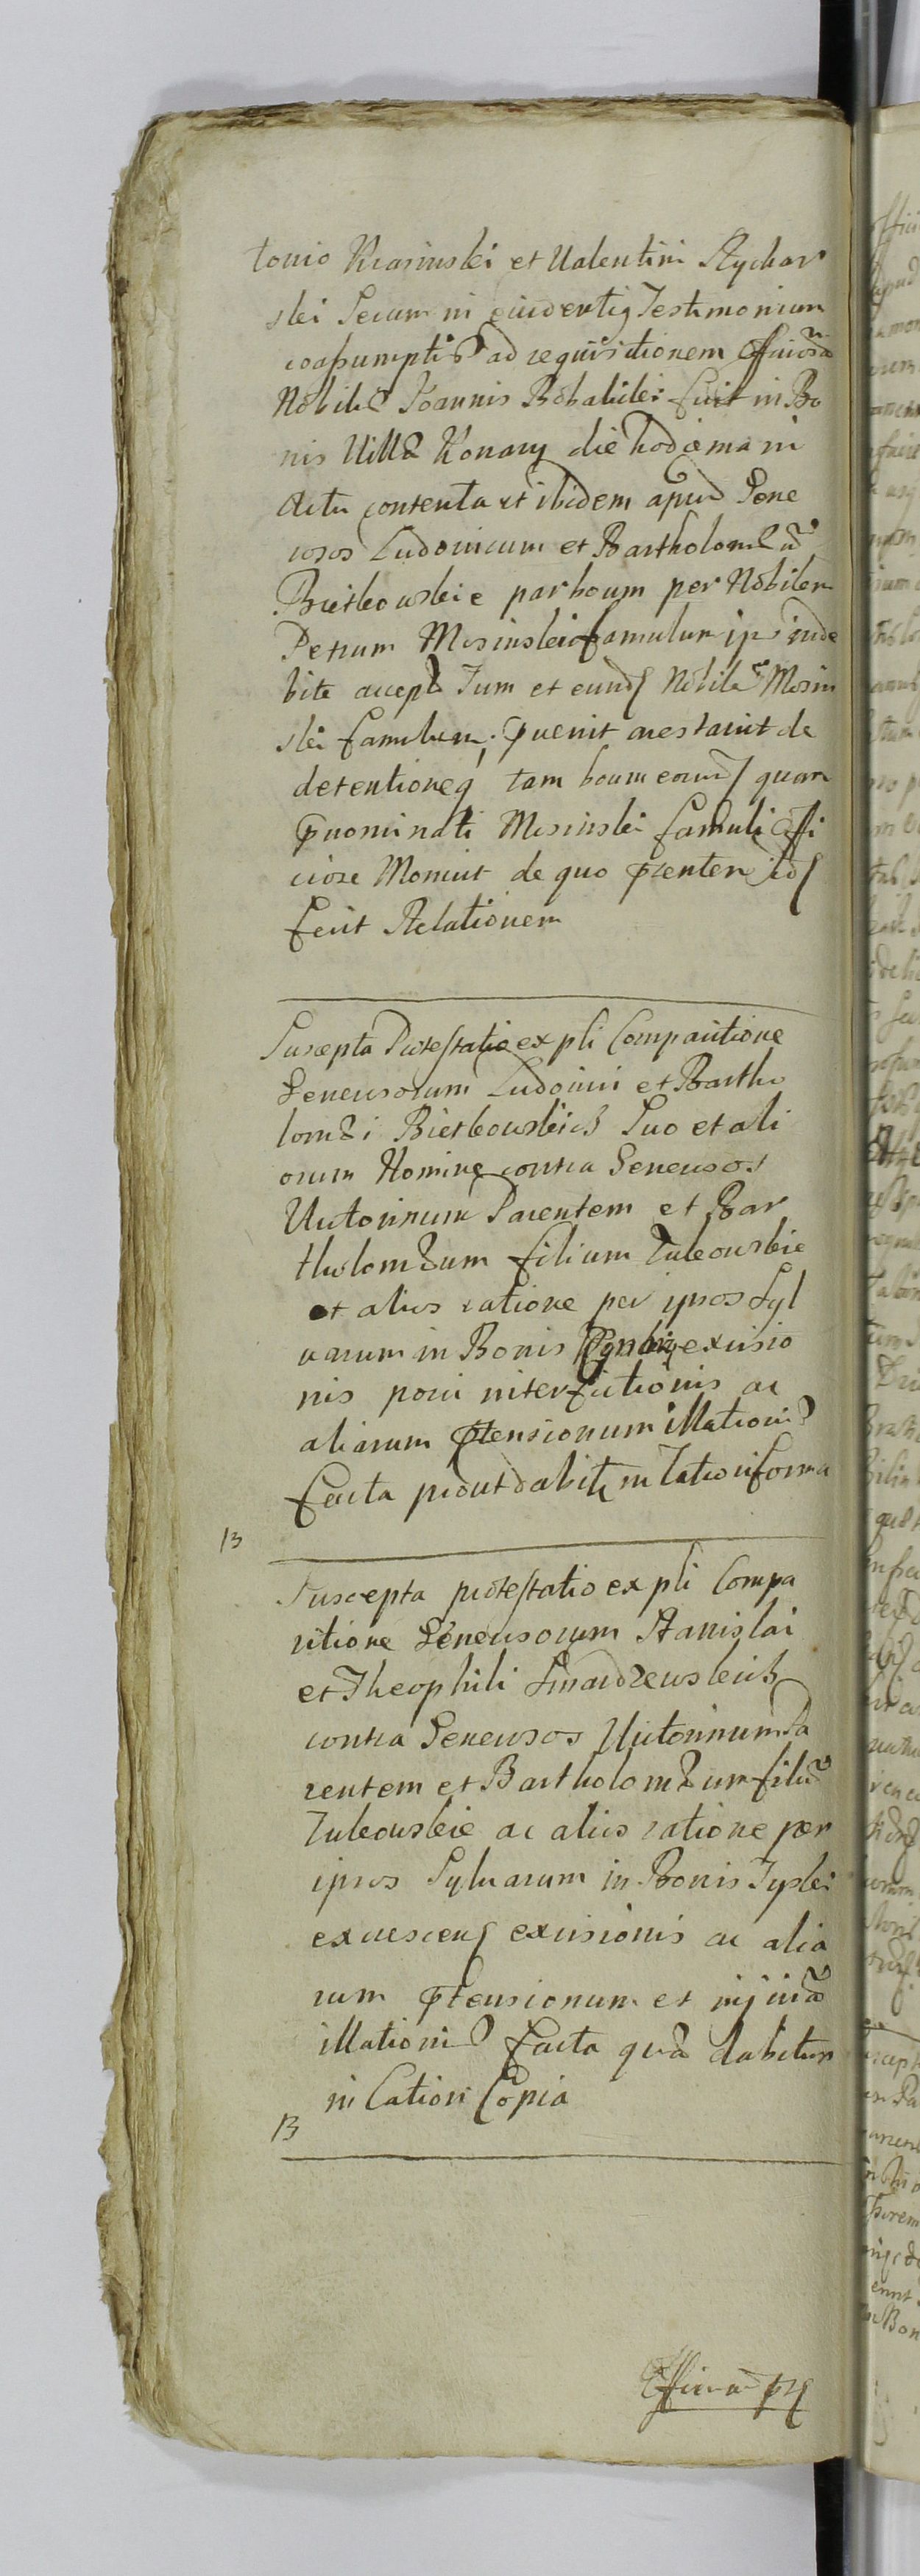 tonio Krasinski et Valentini Rychar
ski Secum in evidentiq Testimonium
coassumptis ad requisitionem
Nobilis Joannis fuit in Bo
nis Villæ Konary die hodierna in
Actu contenta et ibidem apud Gene
rosos Ludovicum et Bartholomæu
Bietkowskie par boum per Nobilem
Petrum Mosinski famulum ips inde
bite accept Tum et eund Nobile Mosin
ski famulum
detentioneq tam boum eorund quam
Mosinski famuli Offi
ciose Monuit de quo id
fecit Relationem
Suscepta Protestatio ex pli Comparitione
Generosorum Ludovici et Bartho
lomæi Bietkowskich Suo et ali
orum Nomine contra Generosos
Victorinum Parentem et Bar
tholomæum filium Zukowskie
et alios ratione per ipsos Syl
varum in Bonis excisio
nis porci interfectionis ac
aliarum ptensionum illationis
facta prout dabit in forma
13
Suscepta protestatio ex pli Compa
ritione Generosorum Stanislai
et Theophili
contra Generosos Victorinum Pa
rentem et Bartholomæum filiu
Zukowskie ac alios ratione per
ipsos Sylvarum in Bonis Tyski
excrescen excisionis ac alia
rum ptensionum et injuria
illationis facta quæ dabitur
in Copia
13